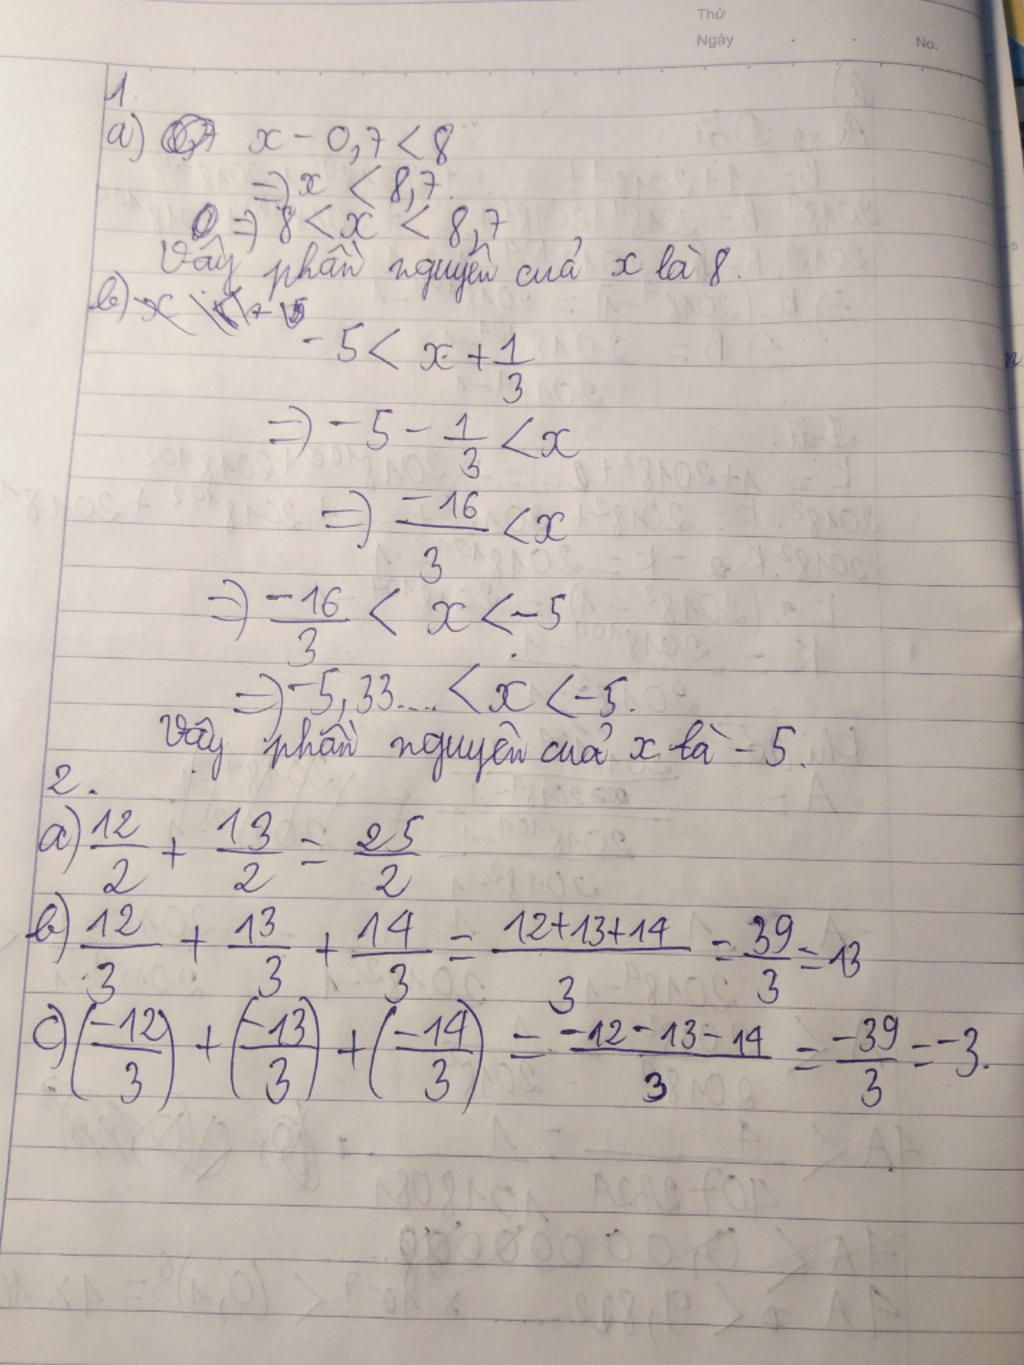 Thứ
Ngày
No.
1.
a) x - 0,7 < 8
=> x < 8,7.
=> 8 < x < 8,7
Vậy phần nguyên của x là 8.
b)
-5 < x + 1/3
=> -5 - 1/3 < x
=> -16/3 < x
=> -16/3 < x < -5
=> -5,33.... < x < -5.
Vậy phần nguyên của x là -5.
2.
a) 12/2 + 13/2 = 25/2
b) 12/3 + 13/3 + 14/3 = 12+13+14/3 = 39/3 = 13
c) (-12/3) + (-13/3) + (-14/3) = -12-13-14/3 = -39/3 = -3.